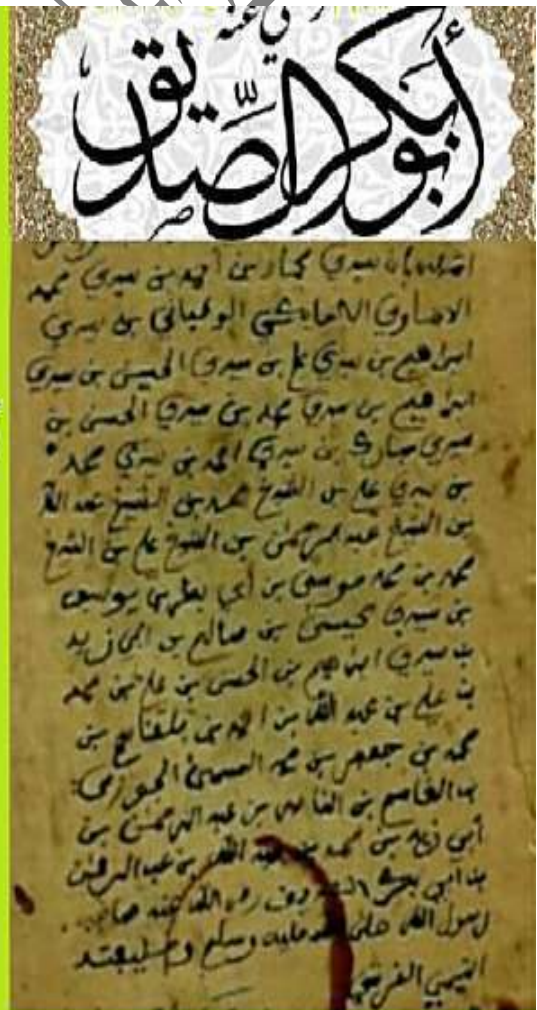 رضي عنه
أبو بكر الصديق
سيدي مبارك بن أحمد بن سيدي محمد
بن سيدي
ابراهيم بن سيدي علي بن سيدي الحسين بن سيدي
ابراهيم بن سيدي محمد بن سيدي الحسن بن
سيدي مبارك بن سيدي احمد بن سيدي محمد
بن سيدي علي بن الشيخ محمد بن الشيخ عبد الله
بن الشيخ عبد الرحمن بن الشيخ علي بن الشيخ
محمد بن محمد موسى بن أبي يونس
بن سيدي عيسى بن صالح بن ابي زيد
بن سيدي ابراهيم بن الحسن بن علي بن محمد
بن علي بن عبد الله بن احمد بن بلقاسم بن
محمد بن جعفر بن محمد
بن القاسم بن القاسم بن عبد الرحمن بن
أبي زيد بن محمد بن عبد الله بن عبد الرحمن
بن أبي بكر رضي الله عنه
رسول الله صلى الله عليه وسلم
التيمي القرشي